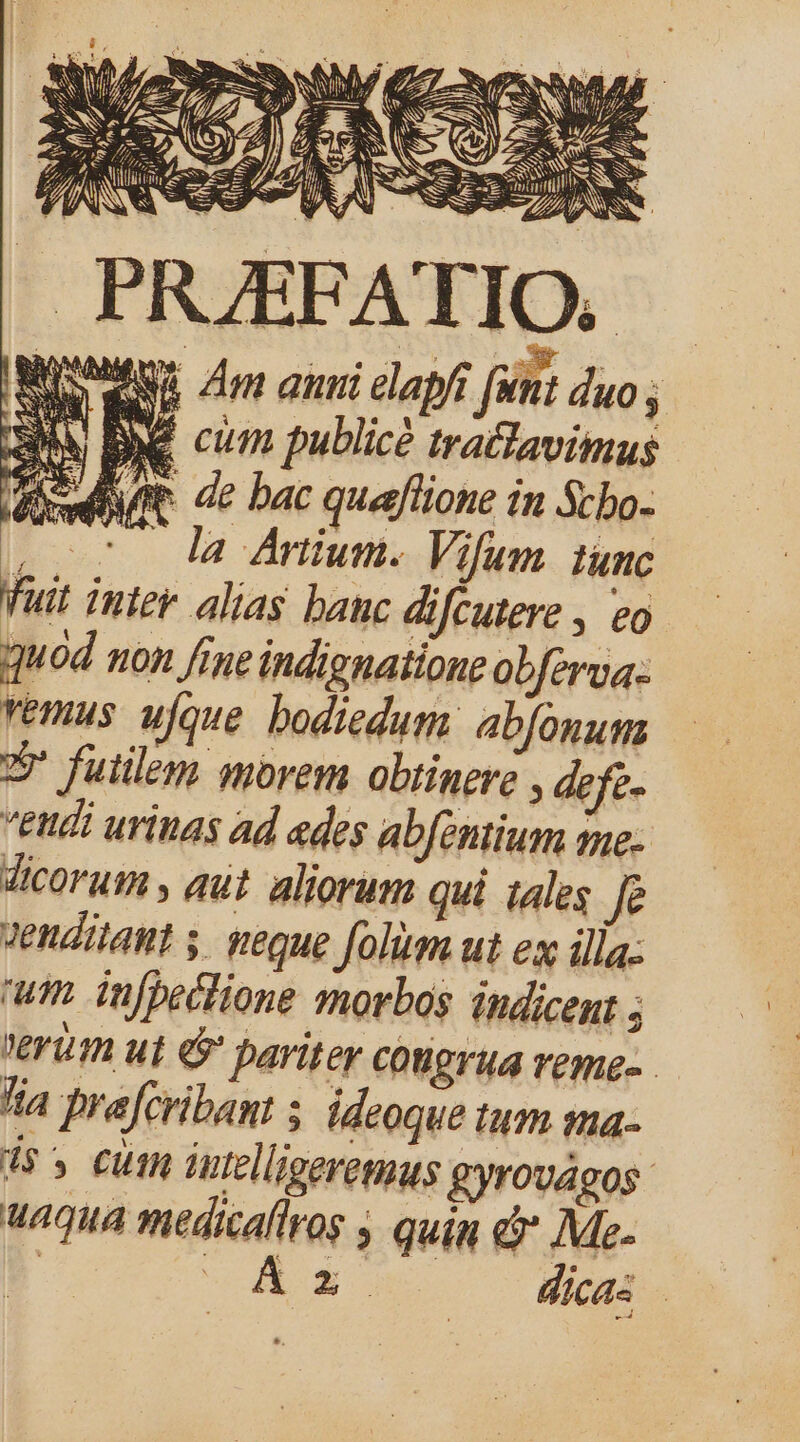 PRÆFATIO.
Am anni elapſi ſunt duo;
cùm publicè tractavimus
de hac quæſtione in Scho-
la Artium. Viſum tunc
fuit inter alias hanc diſcutere, eo
quòd non ſine indignatione obſerva-
remus uſque hodiedum abſonum
& futilem morem obtinere, defe-
rendi urinas ad ædes abſentium me-
dicorum, aut aliorum qui tales ſe
venditant; neque ſolùm ut ex illa-
rum inſpectione morbos indicent;
verùm ut & pariter congrua reme-
dia præſcribant; ideoque tum ma-
is, cùm intelligeremus gyrovágos
uaqua medicaſtros, quin & Me-
A 2 dica-